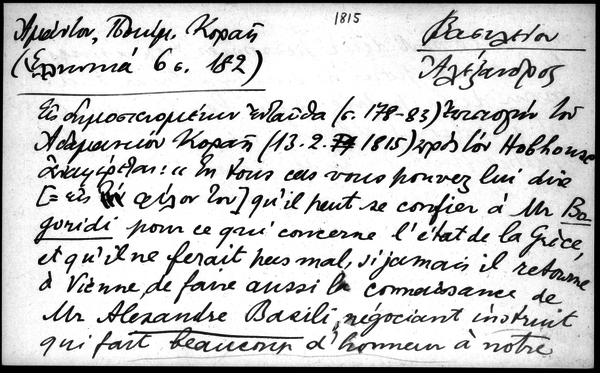 1815
Ἀμάντου, Κοραῆ
Βασιλείου
(Ἑλληνικά 6 σ. 182)
Ἀλέξανδρος
Εἰς δημοσιευομένην ἐνταῦθα (σ. 178-83) ἐπιστολὴν τοῦ
Ἀδαμαντίου Κοραῆ (13.2.1815) πρὸς τὸν Hobhouse
ἀναφέρεται: « En tous cas vous pouvez lui dire
[= εἰς φίλον του] qu'il peut se confier à Mr Ba-
guridi pour ce qui concerne l'état de la Grèce,
et qu'il ne ferait pas mal, si jamais il retourne
à Vienne, de faire aussi la connaissance de
Mr Alexandre Basili, négociant instruit
qui fait beaucoup d'honneur à notre